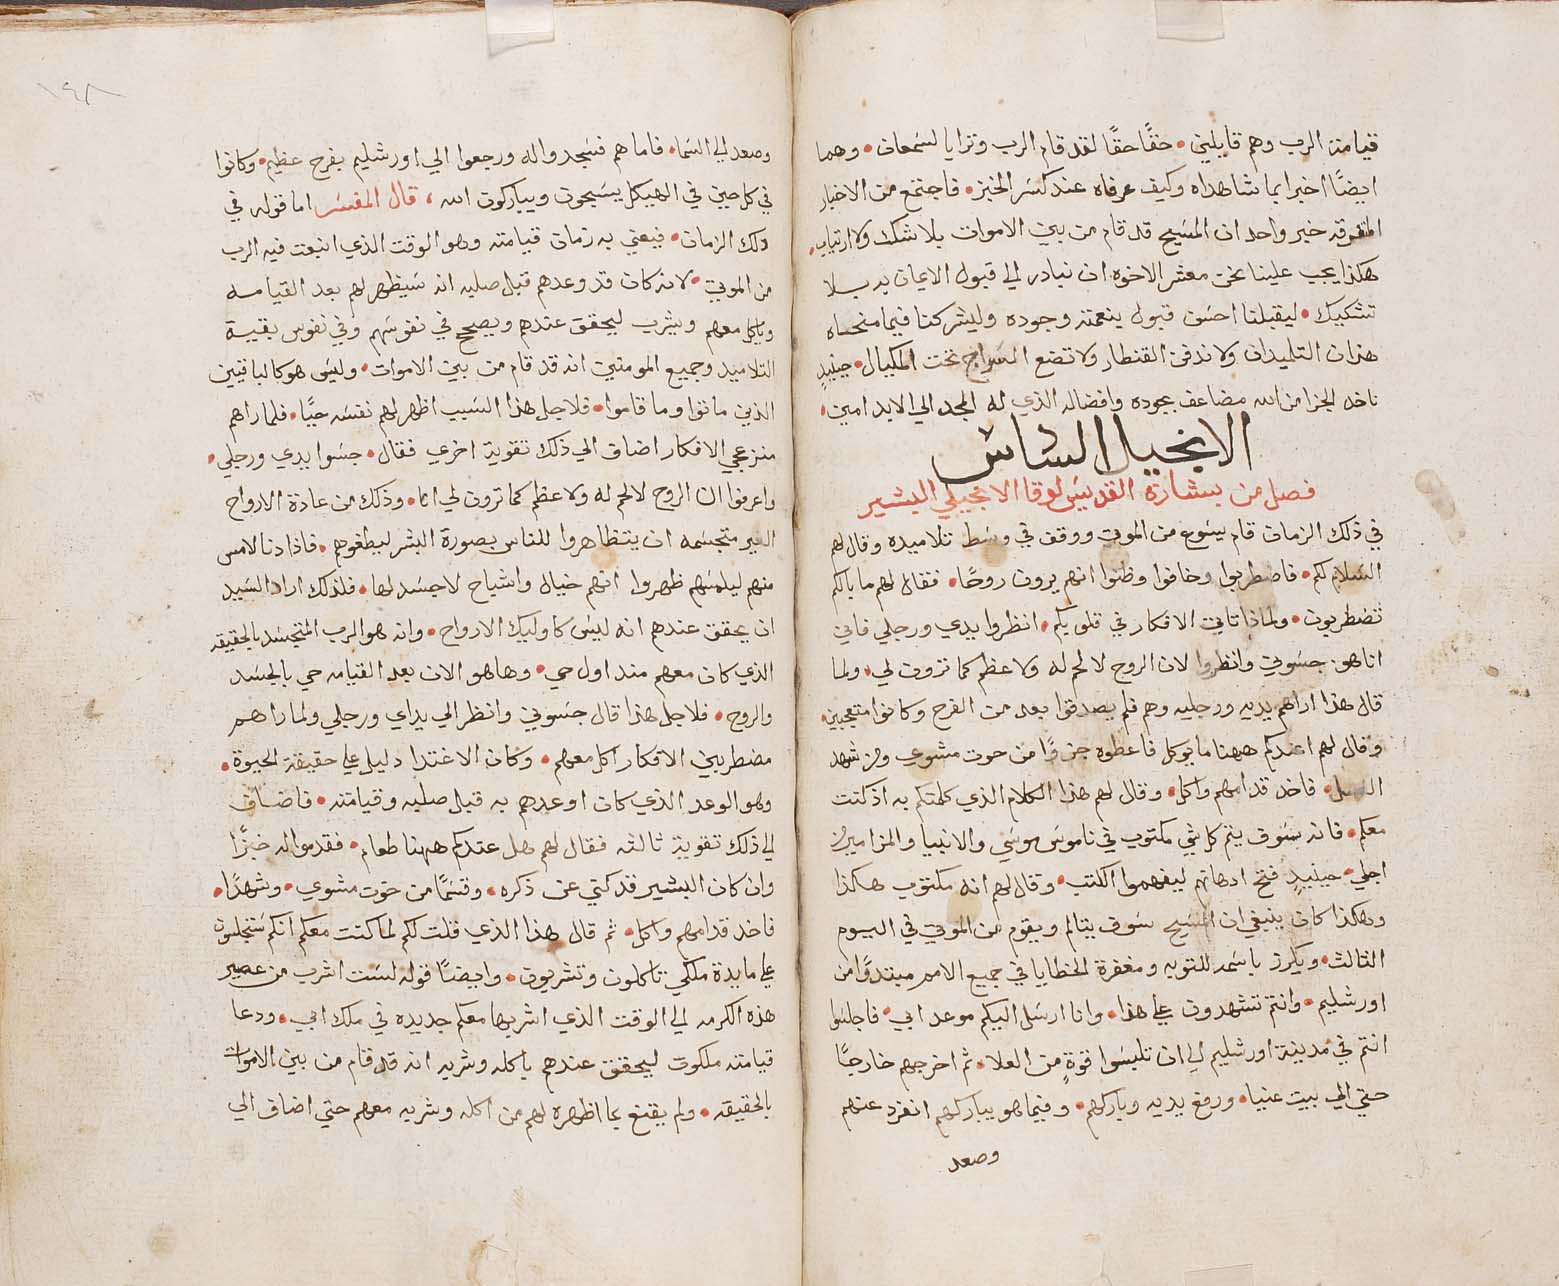 قيامة الرب وهم قايلين • حقًا حقًا لقد قام الرب وترايا لسمعان • وهما
ايضًا اخبرا بما شاهداه وكيف عرفاه عند كسر الخبز • فاجتمع من الاخبار
المتفرقه خبر واحد ان المسيح قد قام من بين الاموات بلا شك ولا ارتياب •
هكذا يجب علينا نحن معشر الاخوه ان نبادر الي قبول الايمان به بلا
تشكيك • ليقبلنا احسن قبول بنعمته وجوده وليشركنا فيما منحاه
هذان التلميذان ولا ندفن القنطار ولا نضع السراج تحت المكيال • حينيذٍ
ناخذ الجزا من الله مضاعف بجوده وافضاله الذي له المجد الي الابد امين •
الانجيل السادس
فصل من بشارة القديس لوقا الانجيلي البشير
في ذلك الزمان قام يسوع من الموتي ووقف في وسط تلاميذه وقال لهم
السلام لكم • فاضطربوا وخافوا وظنوا انهم يرون روحًا • فقال لهم ما بالكم
تضطربون • ولماذا تاتي الافكار في قلوبكم • انظروا يدي ورجلي فاني
انا هو • جسوني وانظروا لان الروح لا لحم له ولا عظم كما ترون لي • ولما
قال هذا اراهم يديه ورجليه وهم فلم يصدقوا بعد من الفرح وكانوا متعجبين •
وقال لهم اعندكم ههنا ما يوكل فاعطوه جزوًا من حوت مشوي ومن شهد
العسل • فاخذ قدامهم واكل • وقال لهم هذا الكلام الذي كلمتكم به اذ كنت
معكم • فانه سوف يتم كل شي مكتوب في ناموس موسي والانبيا والمزامير من
اجلي • حينيذٍ فتح اذهانهم ليفهموا الكتب • وقال لهم انه مكتوب هكذا
وهكذا كان ينبغي ان المسيح سوف يتالم ويقوم من الموتي في اليوم
الثالث • ويكرز باسمه للتوبه ومغفرة الخطايا في جميع الامم مبتدًا من
اورشليم • وانتم تشهدون علي هذا • وانا ارسل اليكم موعد ابي • فاجلسوا
انتم في مدينة اورشليم الي ان تلبسوا قوةٍ من العلا • ثم اخرجهم خارجًا
حتي الي بيت عنيا • ورفع يديه وباركهم • وفيما هو يباركهم انفرد عنهم
وصعد
١٤٨
وصعد الي السما • فاما هم فسجدوا له ورجعوا الي اورشليم بفرح عظيم • وكانوا
في كل حين في الهيكل يسبحون ويباركون الله ، قال المفسر اما قوله في
ذلك الزمان • فيعني به زمان قيامته وهو الوقت الذي انبعث فيه الرب
من الموتي • لانه كان قد وعدهم قبل صلبه انه سيظهر لهم بعد القيامه
وياكل معهم ويشرب ليحقق عندهم ويصحح في نفوسهم وفي نفوس بقية
التلاميذ وجميع المومنين انه قد قام من بين الاموات • وليس هو كالباقيين
الذين ماتوا وما قاموا • فلاجل هذا السبب اظهر لهم نفسه حيًا • فلما راهم
منزعجي الافكار اضاف الي ذلك تقوية اخري فقال • جسوا يدي ورجلي •
واعرفوا ان الروح لا لحم له ولا عظم كما ترون لي انا • وذلك من عادة الارواح
الغير متجسمه ان يتظاهروا للناس بصورة البشر ليطغوهم • فاذا دنا لامس
منهم ليلمسهم ظهروا انهم خيال واشباح لا جسد لها • فلذلك اراد السيد
ان يحقق عندهم انه ليس كاوليك الارواح • وانه هو الرب المتجسد بالحقيقه
الذي كان معهم منذ اول حي • وها هو الان بعد القيامه حي بالجسد
والروح • فلاجل هذا قال جسوني وانظر الي يداي ورجلي ولما راهم
مضطربين الافكار اكل معهم • وكان الاغتدا دليل علي حقيقة الحيوة •
وهو الوعد الذي كان اوعدهم به قبل صلبه وقيامته • فاضاف
الي ذلك تقوية ثالثه فقال لهم هل عندكم ههنا طعام • فقدموا له خبزًا
وان كان البشير قد كني عن ذكره • وقسمًا من حوت مشوي • وشهدًا •
فاخذ قدامهم واكل • ثم قال هذا الذي قلت لكم لما كنت معكم انكم ستجلسون
علي مايدة ملكي تاكلون وتشربون • وايضًا قوله لست اشرب من عصير
هذه الكرمه الي الوقت الذي اشربها معكم جديده في ملك ابي • ودعا
قيامته ملكوت ليحقق عندهم باكله وشربه انه قد قام من بين الاموات
بالحقيقه • ولم يقنع بما اظهره لهم من اكله وشربه معهم حتي اضاف الي